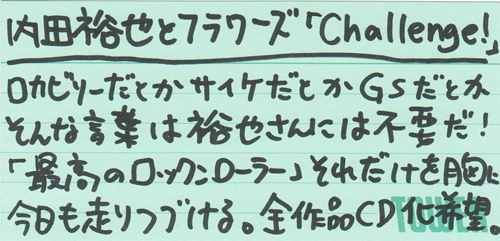 内田裕也とフラワーズ「Challenge!」
ロカビリーだとかサイケだとかGSだとか
そんな言葉は裕也さんには不要だ!
「最高のロックンローラー」それだけを胸に
今日も走りつづける。全作品CD化希望。
TOWER